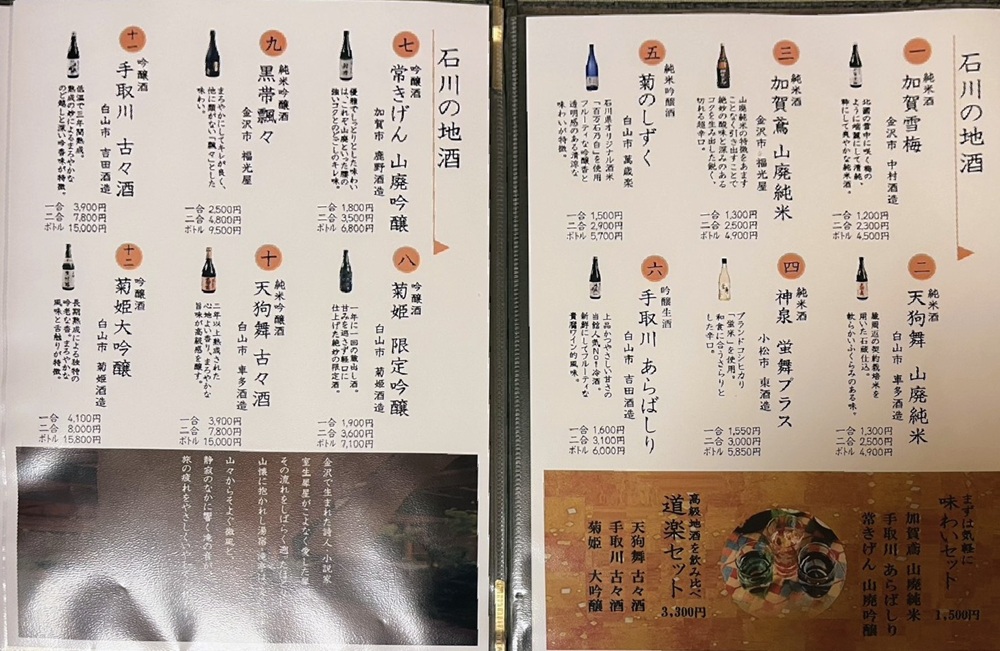 石川の地酒
一
純米酒
加賀雪梅
金沢市 中村酒造
北国の雪中に咲く梅の
ように端麗にして清純、
粋にして爽やかな純米酒。
一合 1,200円
二合 2,300円
ボトル 4,500円
二
純米酒
天狗舞 山廃純米
白山市 車多酒造
蔵周辺の契約栽培米を
用いた石蔵仕込。
軟らかいふくらみのある味。
一合 1,300円
二合 2,500円
ボトル 4,900円
三
純米酒
加賀鳶 山廃純米
金沢市 福光屋
山廃純米の特徴をあます
ことなく引き出すことで
絶妙の酸味と深みのある
コクを生み出した鋭く、
切れる超辛口。
一合 1,300円
二合 2,500円
ボトル 4,900円
四
純米酒
神泉 蛍舞プラス
小松市 東酒造
ブランドコシヒカリ
「蛍米」を使用。
和食に合うさらりと
した辛口。
一合 1,550円
二合 3,000円
ボトル 5,850円
五
純米吟醸酒
菊のしずく
白山市 萬歳楽
石川県オリジナル酒米
「百万石の白」を使用
フルーティな吟醸香と
透明感のある清涼な
味わいが特徴。
一合 1,500円
二合 2,900円
ボトル 5,700円
六
吟醸生酒
手取川 あらばしり
白山市 吉田酒造
上品かつやさしい甘さの
当館人気No1冷酒。
新鮮にしてフルーティな
貴腐ワイン的風味。
一合 1,600円
二合 3,100円
ボトル 6,000円
まずは気軽に
味わいセット
加賀鳶 山廃純米
手取川 あらばしり
常きげん 山廃吟醸
1,500円
高級地酒を飲み比べ
道楽セット
天狗舞 古々酒
手取川 古々酒
菊姫 大吟醸
3,300円
石川の地酒
七
吟醸酒
常きげん 山廃吟醸
加賀市 鹿野酒造
優雅でしっとりとした味わい
は、これぞ山廃といった腰の
強いコクとのどごしのキレ味。
一合 1,800円
二合 3,500円
ボトル 6,800円
八
吟醸酒
菊姫 限定吟醸
白山市 菊姫酒造
一年に一回の蔵出し酒。
甘みを逃さず極口に
仕上げた絶妙の限定酒。
一合 1,900円
二合 3,600円
ボトル 7,100円
九
純米吟醸酒
黒帯飄々
金沢市 福光屋
まろやかにしてキレが良く、
他に類がない「飄々」とした
味わい。
一合 2,500円
二合 4,800円
ボトル 9,500円
十
純米吟醸酒
天狗舞 古々酒
白山市 車多酒造
二年以上熟成された
心地よい香り、まろやかな
旨味が高級感を醸す。
一合 3,900円
二合 7,800円
ボトル 15,000円
十一
吟醸酒
手取川 古々酒
白山市 吉田酒造
低温で三年間熟成。
熟成の技によるまろやかな
のど越しと深い吟香味が特徴。
一合 3,900円
二合 7,800円
ボトル 15,000円
十二
吟醸酒
菊姫大吟醸
白山市 菊姫酒造
長期熟成による独特の
吟老な香。まろやかな
風味と舌触りが特徴。
一合 4,100円
二合 8,000円
ボトル 15,800円
金沢で生まれた詩人・小説家
室生犀星がこよなく愛した
その流れをしばらく遡ったほ
山懐に抱かれし湯宿・滝亭は、
山々からそよぐ微風と、
静寂のなかに響く滝の音が、
旅の疲れをやさしく